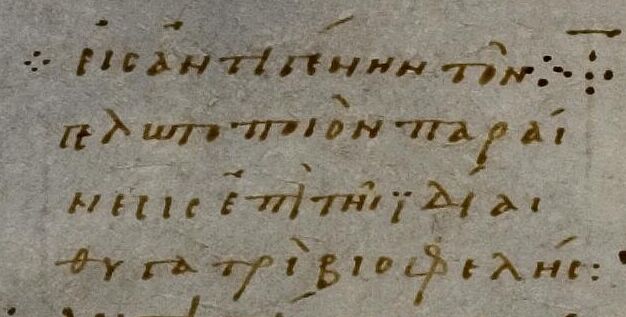 εἰς ἀντιγένην τὸν
γελωτοποιὸν παραί
νεσις ἐπὶ τῆι ϊδίαι
θυγατρὶ βιοφελής: